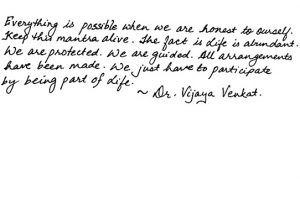 Everything is possible when we are honest to ourself.
Keep this mantra alive. The fact is life is abundant.
We are protected. We are guided. All arrangements
have been made. We just have to participate
by being part of life.
~ Dr. Vijaya Venkat.